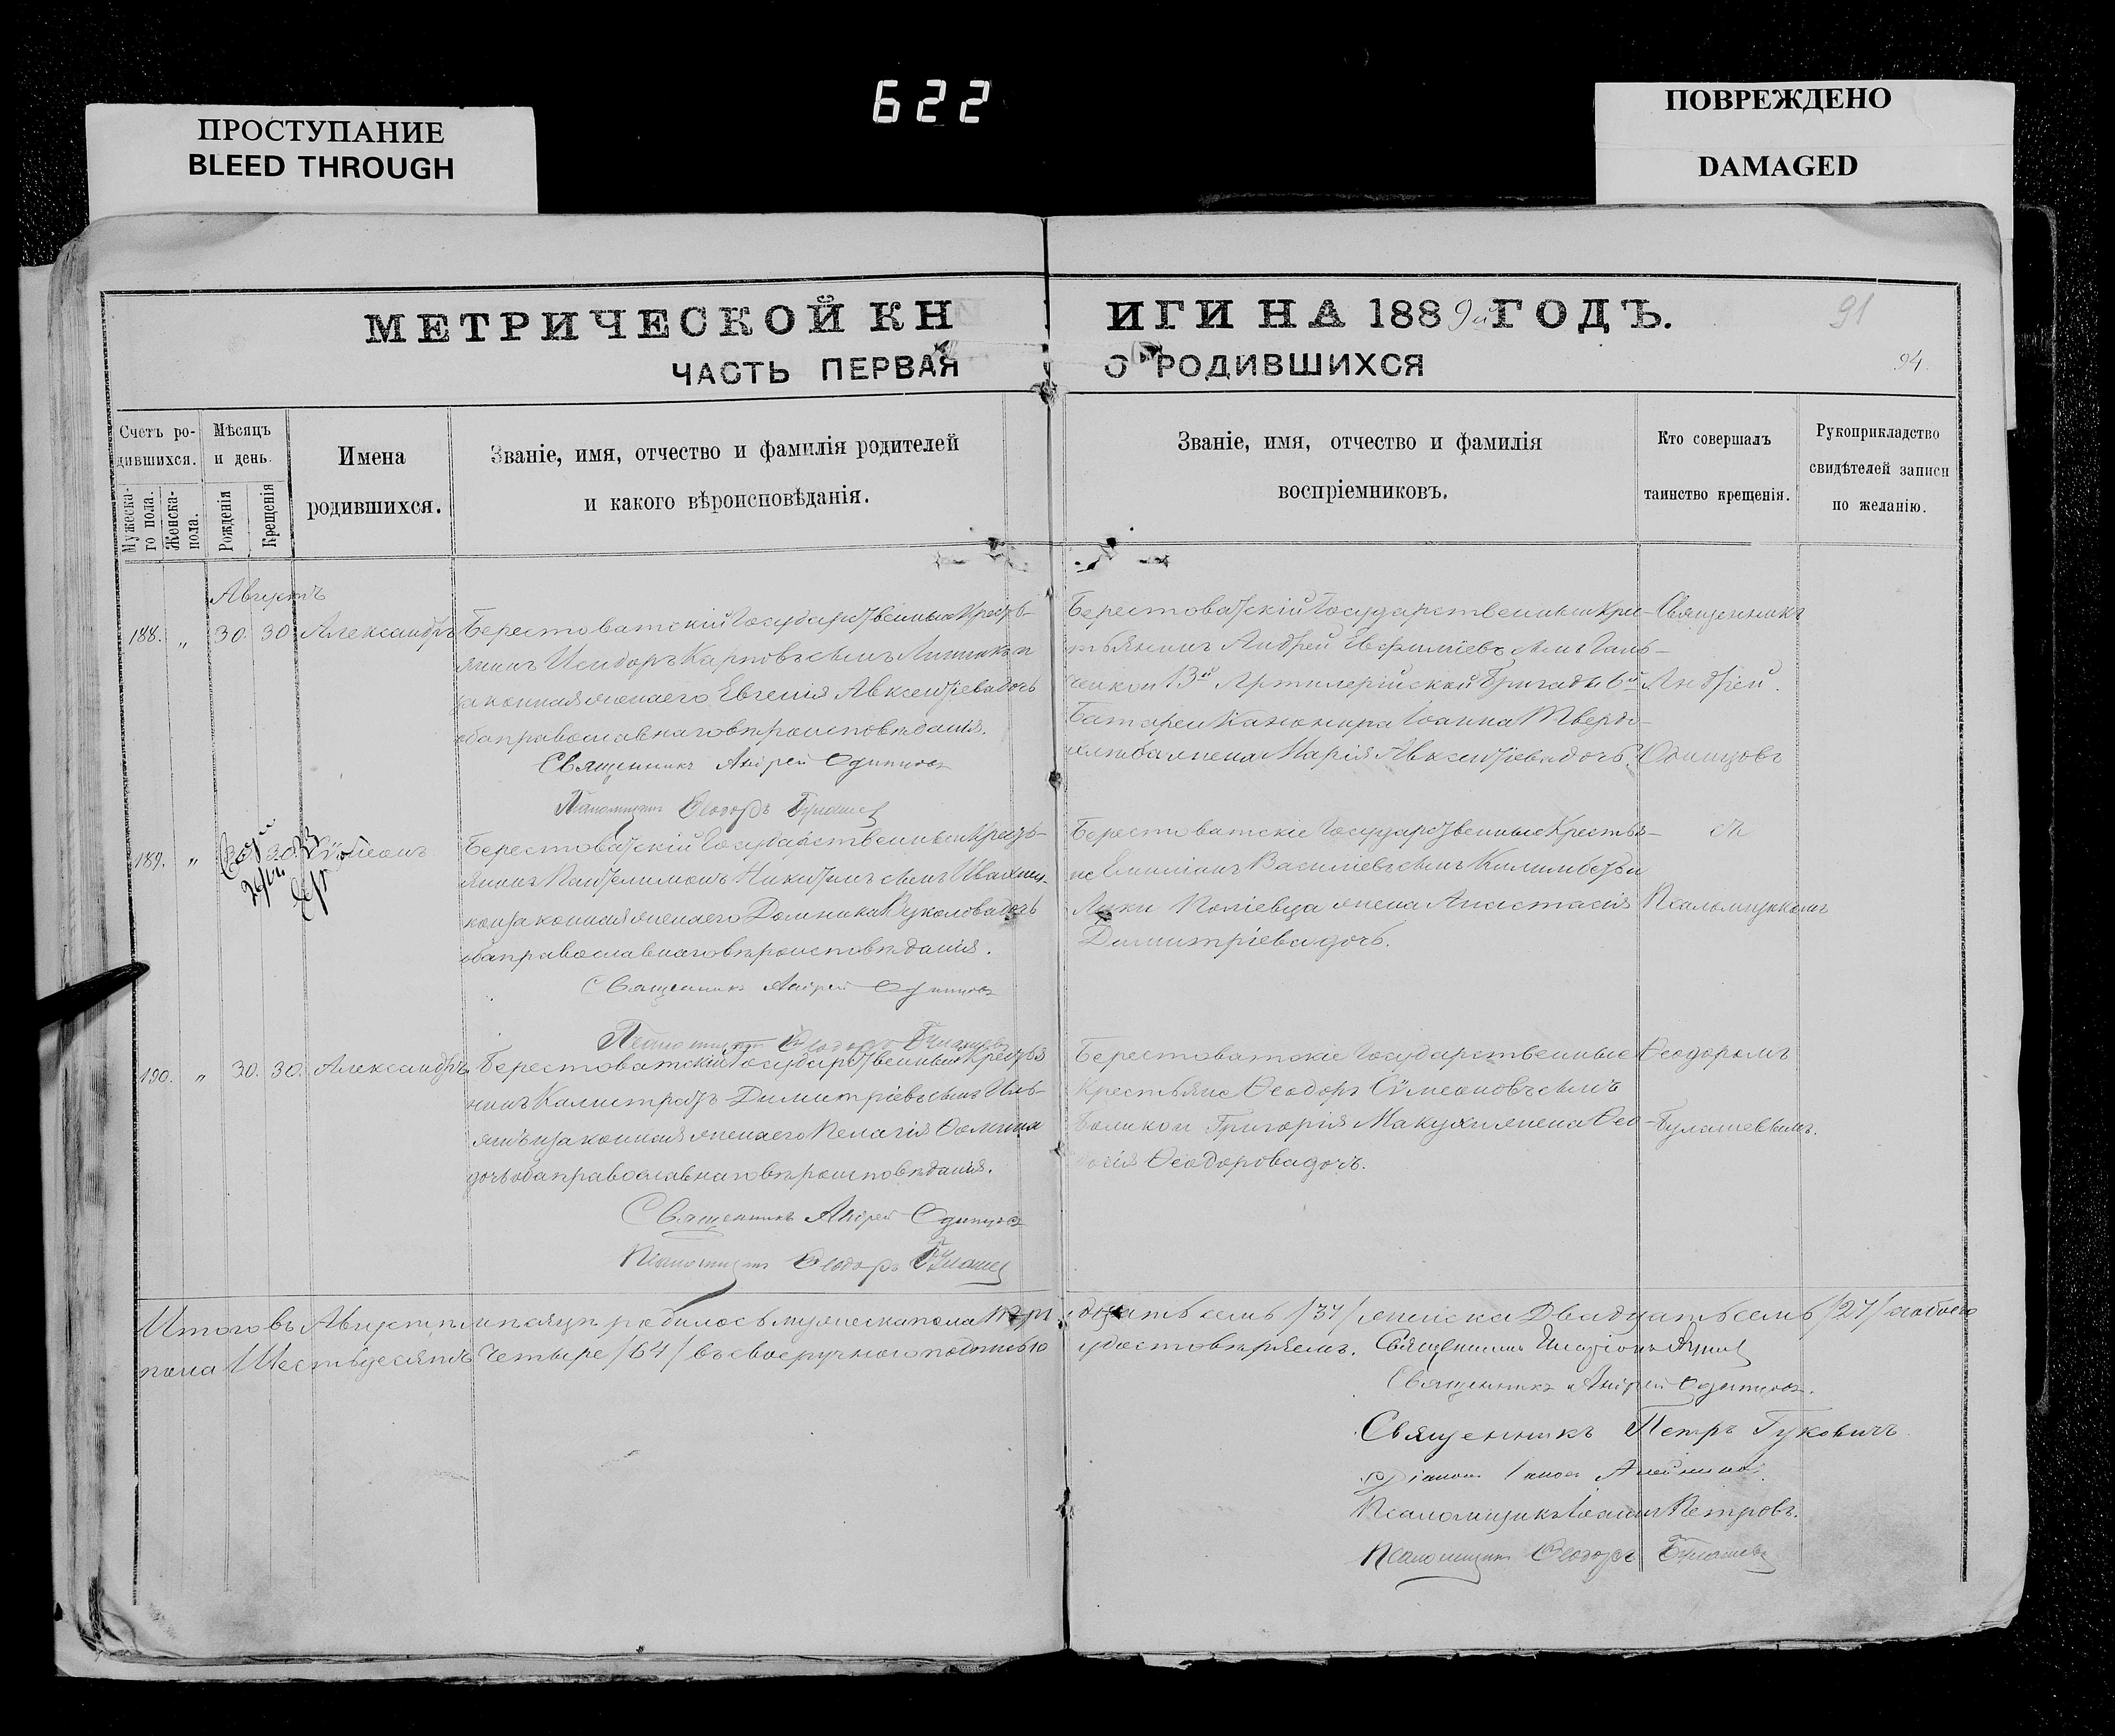 622
ПРОСТУПАНИЕ
BLEED THROUGH
ПОВРЕЖДЕНО
DAMAGED
МЕТРИЧЕСКОЙ КНИГИ НА 1889й ГОДЪ.
91
ЧАСТЬ ПЕРВАЯ О РОДИВШИХСЯ
94.
Счетъ ро-
дившихся.
Мужеска-
го пола.
Женска-
пола.
Мѣсяцъ
и день.
Рожденія
Крещенія
Имена
родившихся.
Званіе, имя, отчество и фамилія родителей
и какого вѣроисповѣданія.
Званіе, имя, отчество и фамилія
воспріемниковъ.
Кто совершалъ
таинство крещенія.
Рукоприкладство
свидѣтелей записи
по желанію.
Августъ
188. " 30. 30. Александръ
Берестоватскій Государственный Кресть-
янинъ Исидоръ Карповъ сынъ
законная жена его Евгенія Авксентіева дочь
оба православнаго вѣроисповѣданія.
Священникъ Андрей Одинцовъ
Псаломщикъ Ѳеодоръ Булашев
Берестоватскій Государственный Кре-
стьянинъ Андрей Евфиміевъ сынъ
13й Артилерійской Бригады 6й
Батареи Канонира Іоанна Твердо-
хлѣба жена Марія Авксентіева дочь.
Священникъ
Андрей
Одинцовъ
189. " 30. 30. Сѵмеонъ
Берестоватскій Государственный Кресть-
янинъ Пантелимонъ Никитинъ сынъ
законная жена его Домника Вуколова дочь
оба православнаго вѣроисповѣданія.
Священникъ Андрей Одинцовъ
Псаломщикъ Ѳеодоръ Булашевъ
Берестоватскіе Государственные Крестья-
не Емиліанъ Василіевъ сынъ
Луки жена Анастасія
Димитріева дочь.
съ
Псаломщикомъ
190. " 30. 30. Александръ
Берестоватскій Государственный Крестья
нинъ Калистратъ Димитріевъ сынъ Иль-
яшъ законная жена его Пелагія Ѳомина
дочь оба православнаго вѣроисповѣданія.
Священникъ Андрей Одинцовъ
Псаломщикъ Ѳеодоръ Булашев
Берестоватскіе Государственные
Крестьяне Ѳеодоръ Сѵмеоновъ сынъ
Григорія Макухи жена Ѳео-
досія Ѳеодорова дочь.
Ѳеодоромъ
Булашевымъ.
Итого въ Августѣ мѣсяцѣ родилось мужеска пола тридцать семь /37/ женска Двадцать семь /27/ а обоего
пола Шестьдесятъ Четыре /64/ въ своеручною подписью удостовѣряемъ. Священникъ
Священникъ Андрей Одинцовъ.
Священникъ Петръ Гуковичъ
Діаконъ
Псаломщикъ Іоаннъ Петровъ.
Псаломщикъ Ѳеодоръ Булашевъ